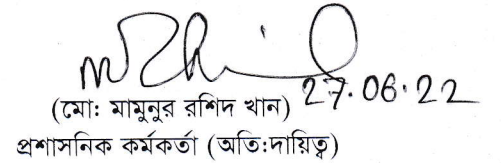 27.06.22
(মো: মামুনুর রশিদ খান)
প্রশাসনিক কর্মকর্তা (অতি:দায়িত্ব)